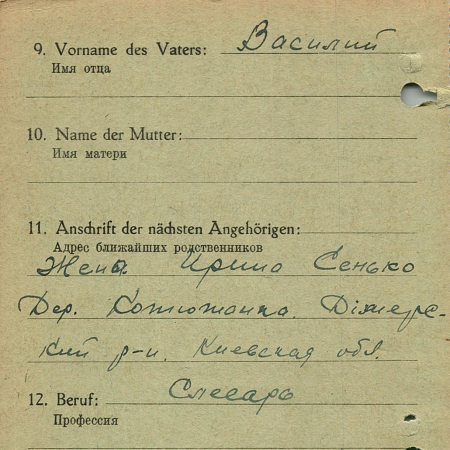 9. Vorname des Vaters: Василий
Имя отца
10. Name der Mutter:
Имя матери
11. Anschrift der nächsten Angehörigen:
Адрес ближайших родственников
Жена Ирина Сенько
Дер. Димерс-
кий р-н. Киевская обл.
12. Beruf: Слесарь
Профессия